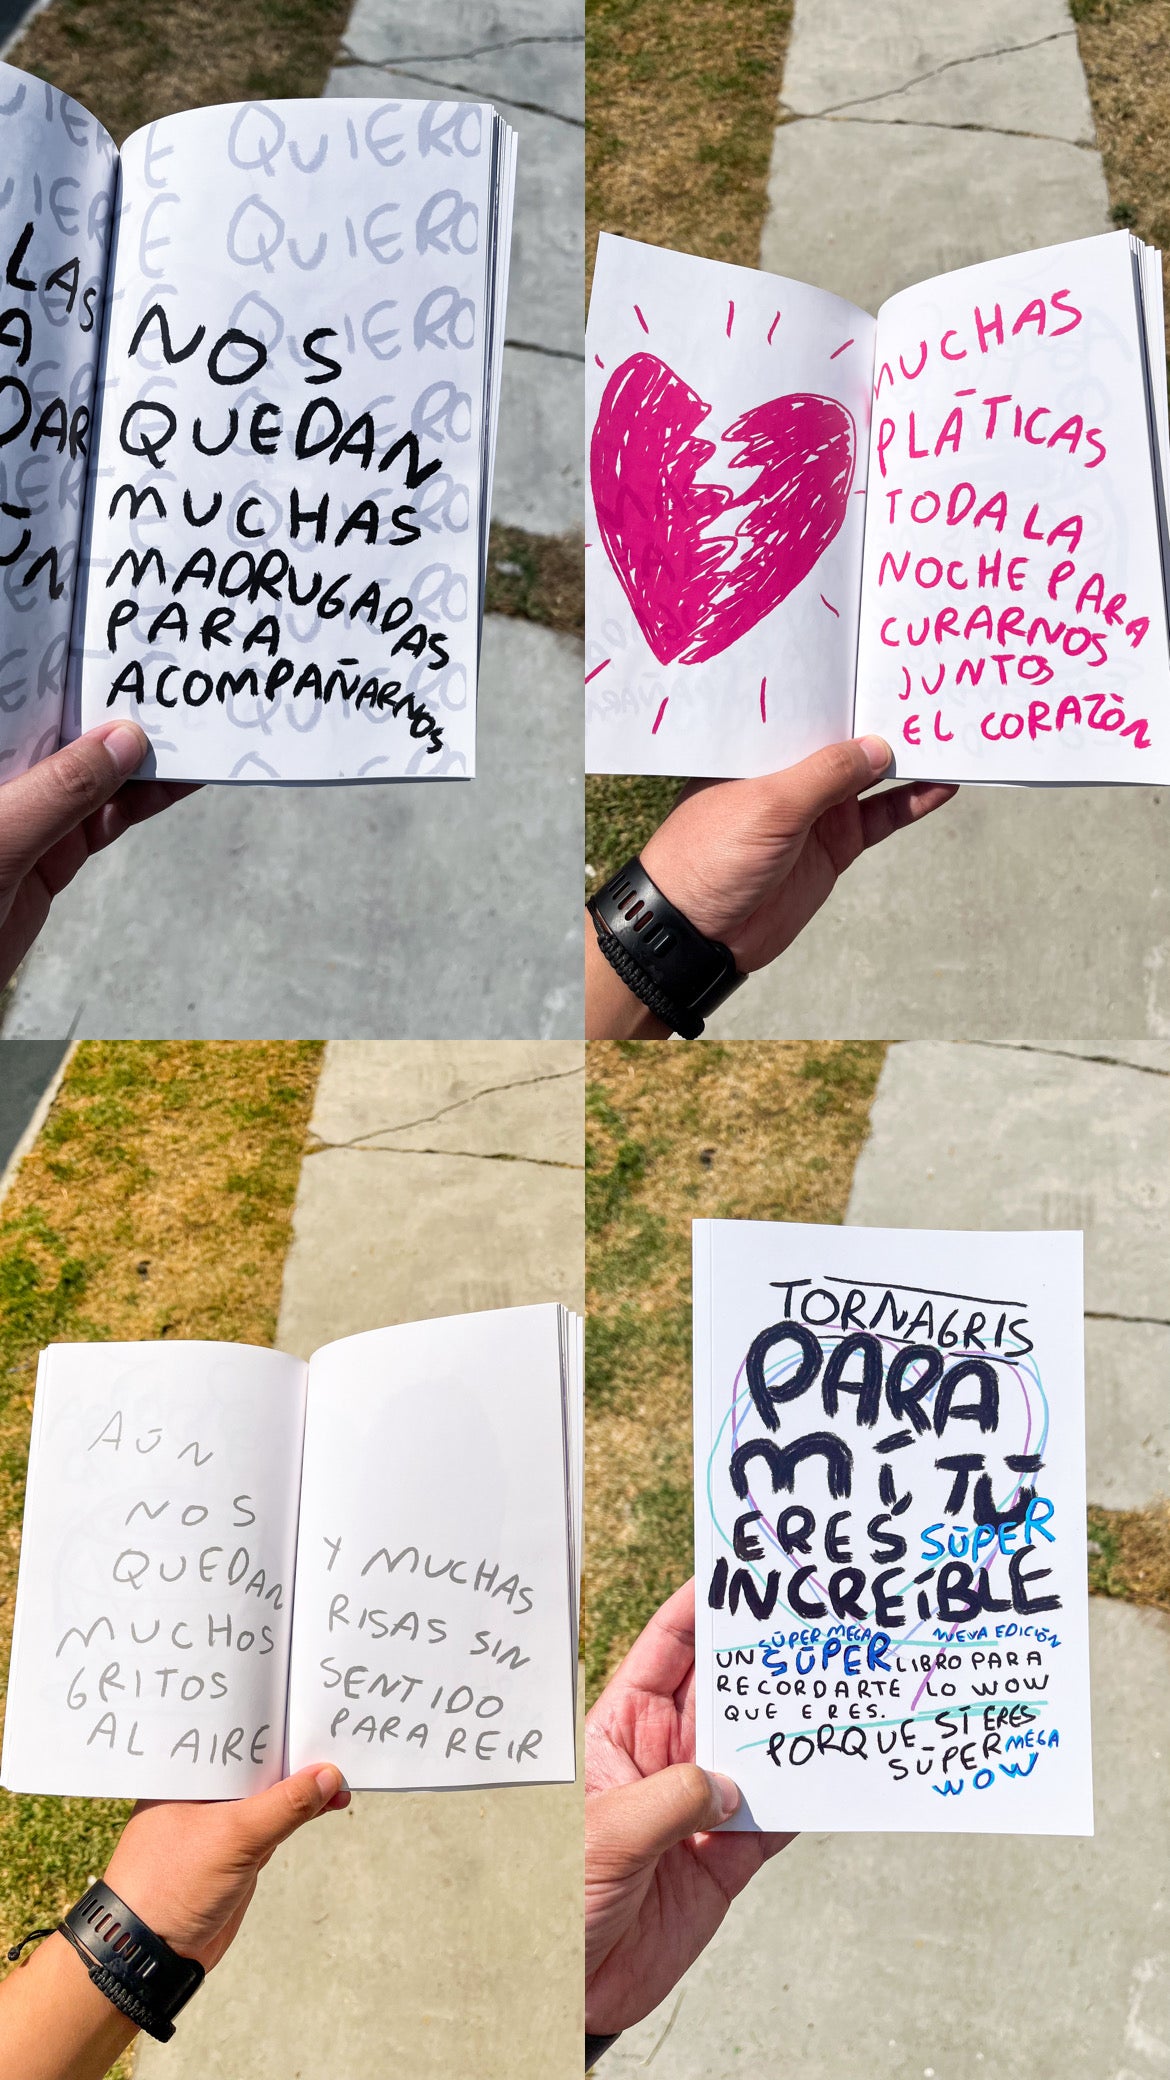 QUIERO
QUIERO
QUIERO
QUIERO
QUIERO
QUIERO
QUIERO
QUIERO
LAS
A
DAR
UN
NOS
QUEDAN
MUCHAS
MADRUGADAS
PARA
ACOMPAÑARNOS
MUCHAS
PLÁTICAS
TODA LA
NOCHE PARA
CURARNOS
JUNTOS
EL CORAZÓN
AÚN
NOS
QUEDAN
MUCHOS
GRITOS
AL AIRE
Y MUCHAS
RISAS SIN
SENTIDO
PARA REIR
TORNAGRIS
PARA
MÍ TÚ
ERES SÚPER
INCREÍBLE
SÚPER MEGA NUEVA EDICIÓN
UN SÚPER LIBRO PARA
RECORDARTE LO WOW
QUE ERES.
PORQUE SÍ ERES
SÚPER MEGA
WOW